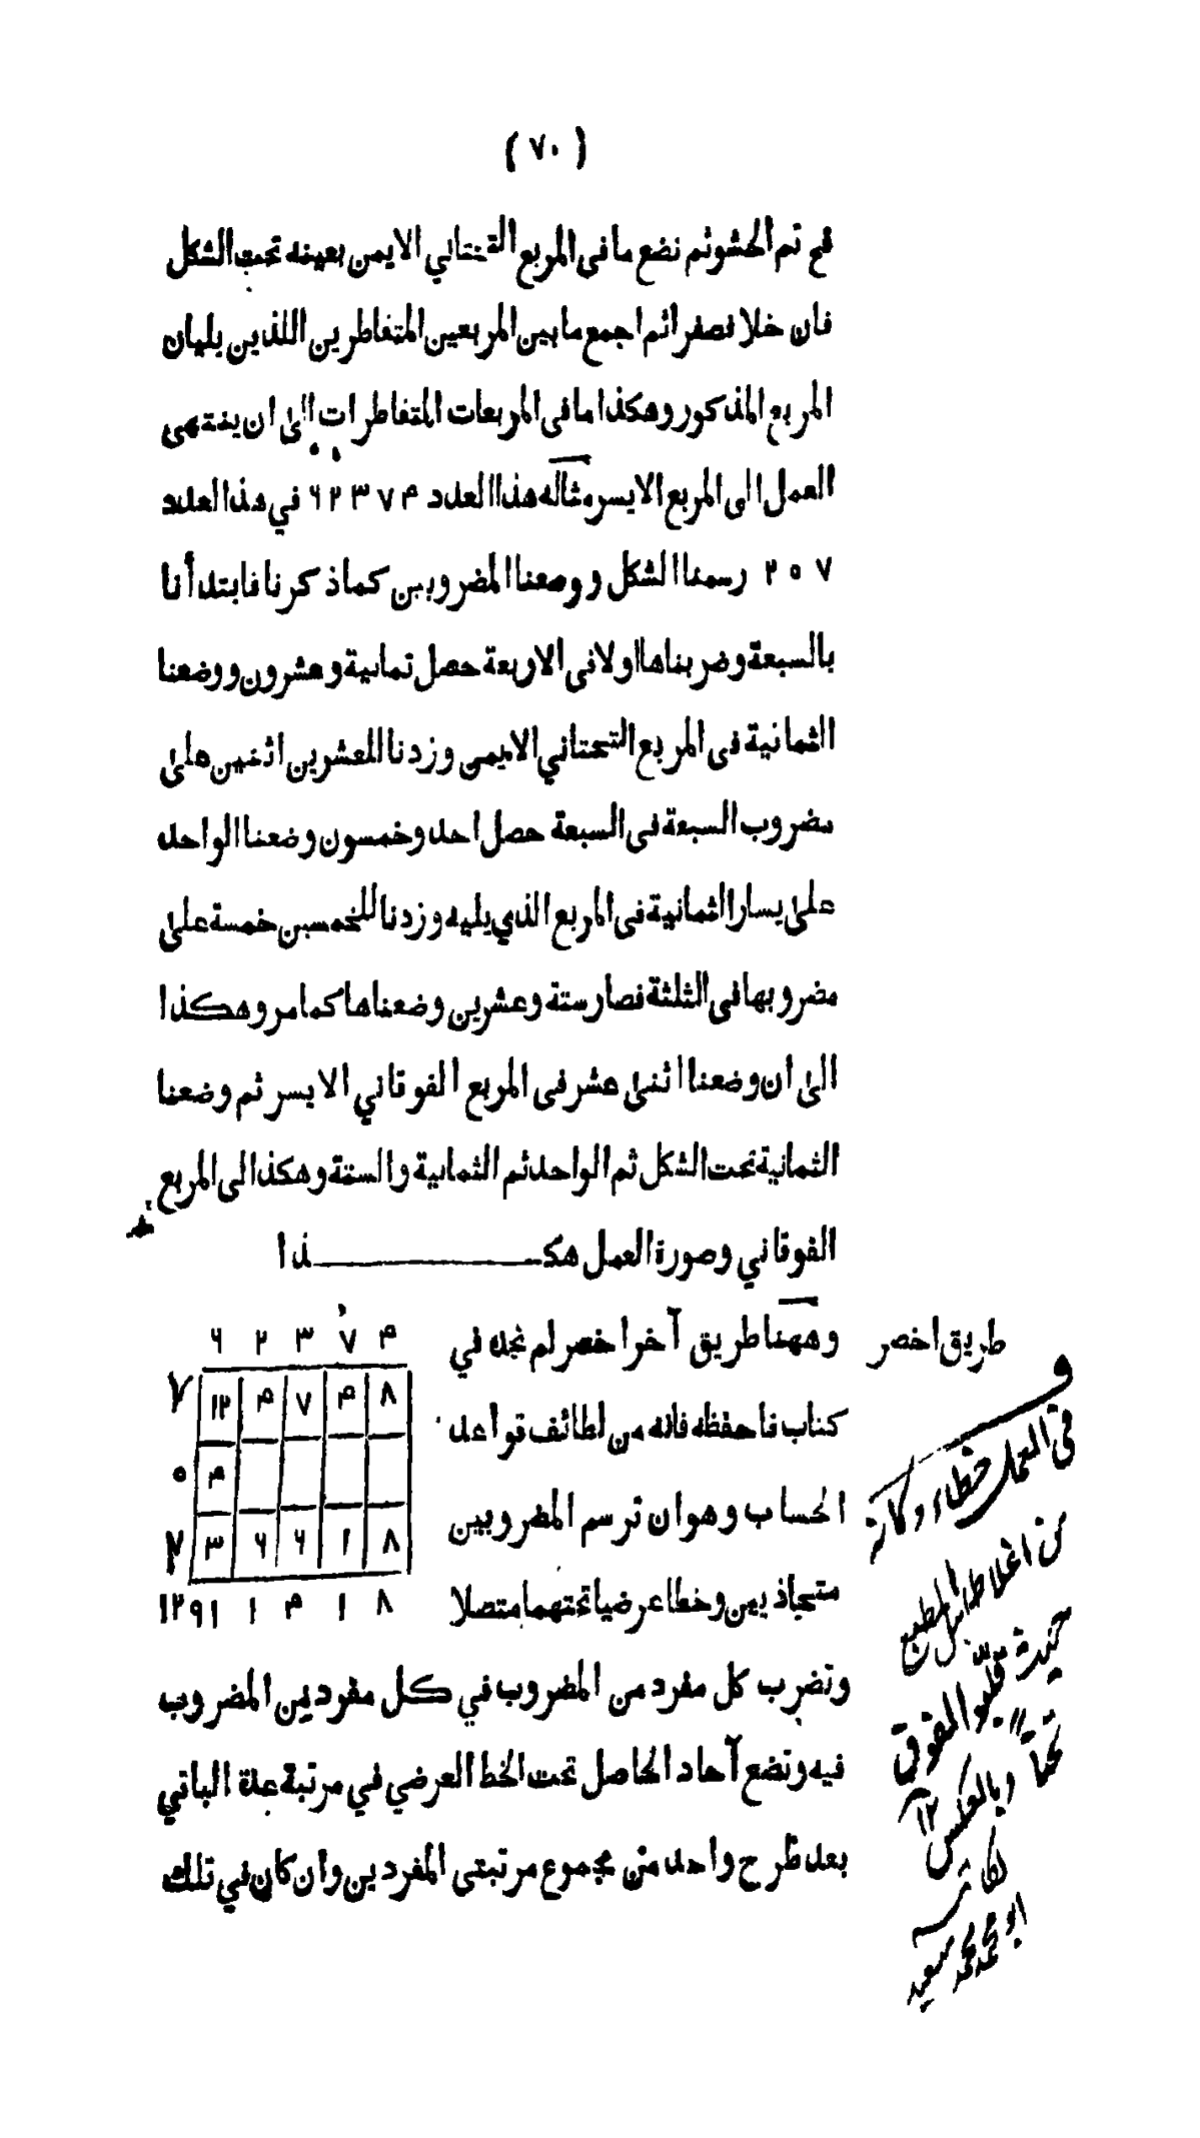 ( ٧٠ )
فح تم الحشو ثم نضع ما فى المربع التحتاني الايمن بعينه تحت الشكل
فان خلا فصفرا ثم اجمع ما بين المربعين المتقاطرين اللذين يليان
المربع المذكور وهكذا ما فى المربعات المتقاطرات الى ان ينتهى
العمل الى المربع الايسر مثاله هذا العدد ۴ ٧ ٣ ٢ ٦ في هذا العدد
٧ ٥ ٢ رسمنا الشكل ووضعنا المضروبين كما ذكرنا فابتدأنا
بالسبعة وضربناها اولا فى الاربعة حصل ثمانية وعشرون ووضعنا
الثمانية فى المربع التحتاني الايمن وزدنا للعشرين اثنين على
مضروب السبعة فى السبعة حصل احد وخمسون وضعنا الواحد
على يسار الثمانية فى المربع الذي يليه وزدنا للخمسين خمسة على
مضروبها فى الثلثة فصار ستة وعشرين وضعناها كما مر وهكذا
الى ان وضعنا اثنى عشر فى المربع الفوقاني الايسر ثم وضعنا
الثمانية تحت الشكل ثم الواحد ثم الثمانية والستة وهكذا الى المربع
الفوقاني وصورة العمل هكــــــــــذا
طريق اخصر
وههنا طريق آخر اخصر لم نجده في
كتاب فاحفظه فانه من لطائف قواعد
الحساب وهو ان ترسم المضروبين
متحاذيين وخطا عرضيا تحتهما متصلا
٦ ٢ ٣ ٧ ۴
٧ ١٢ ۴ ٧ ۴ ٨
٥ ۴
٢ ٣ ٦ ٦ ١ ٨
١٢٩١ ١ ۴ ١ ٨
وتضرب كل مفرد من المضروب في كل مفرد من المضروب
فيه وتضع آحاد الحاصل تحت الخط العرضي في مرتبة عدة الباقي
بعد طرح واحد من مجموع مرتبتى المفردين وان كان في تلك
فى العمل خطاء وكانه
من اغلاط المطبع
الفوق
تحتا وبالعكس ١٢
ابو محمد محمد سعيد